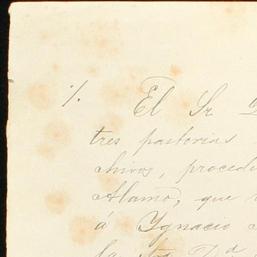 %. El Sr
tres pastorias
chivos, procede
Alamo, que
á Ygnacio
la